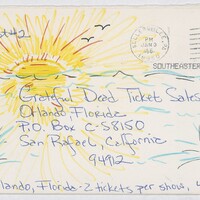 PM
SOUTHEASTER
Grateful Dead Ticket Sales
Orlando Floride
P.O. Box C-S8150
San Rafael, Californie
94912
lando, Florida - 2 tickets per show, 4